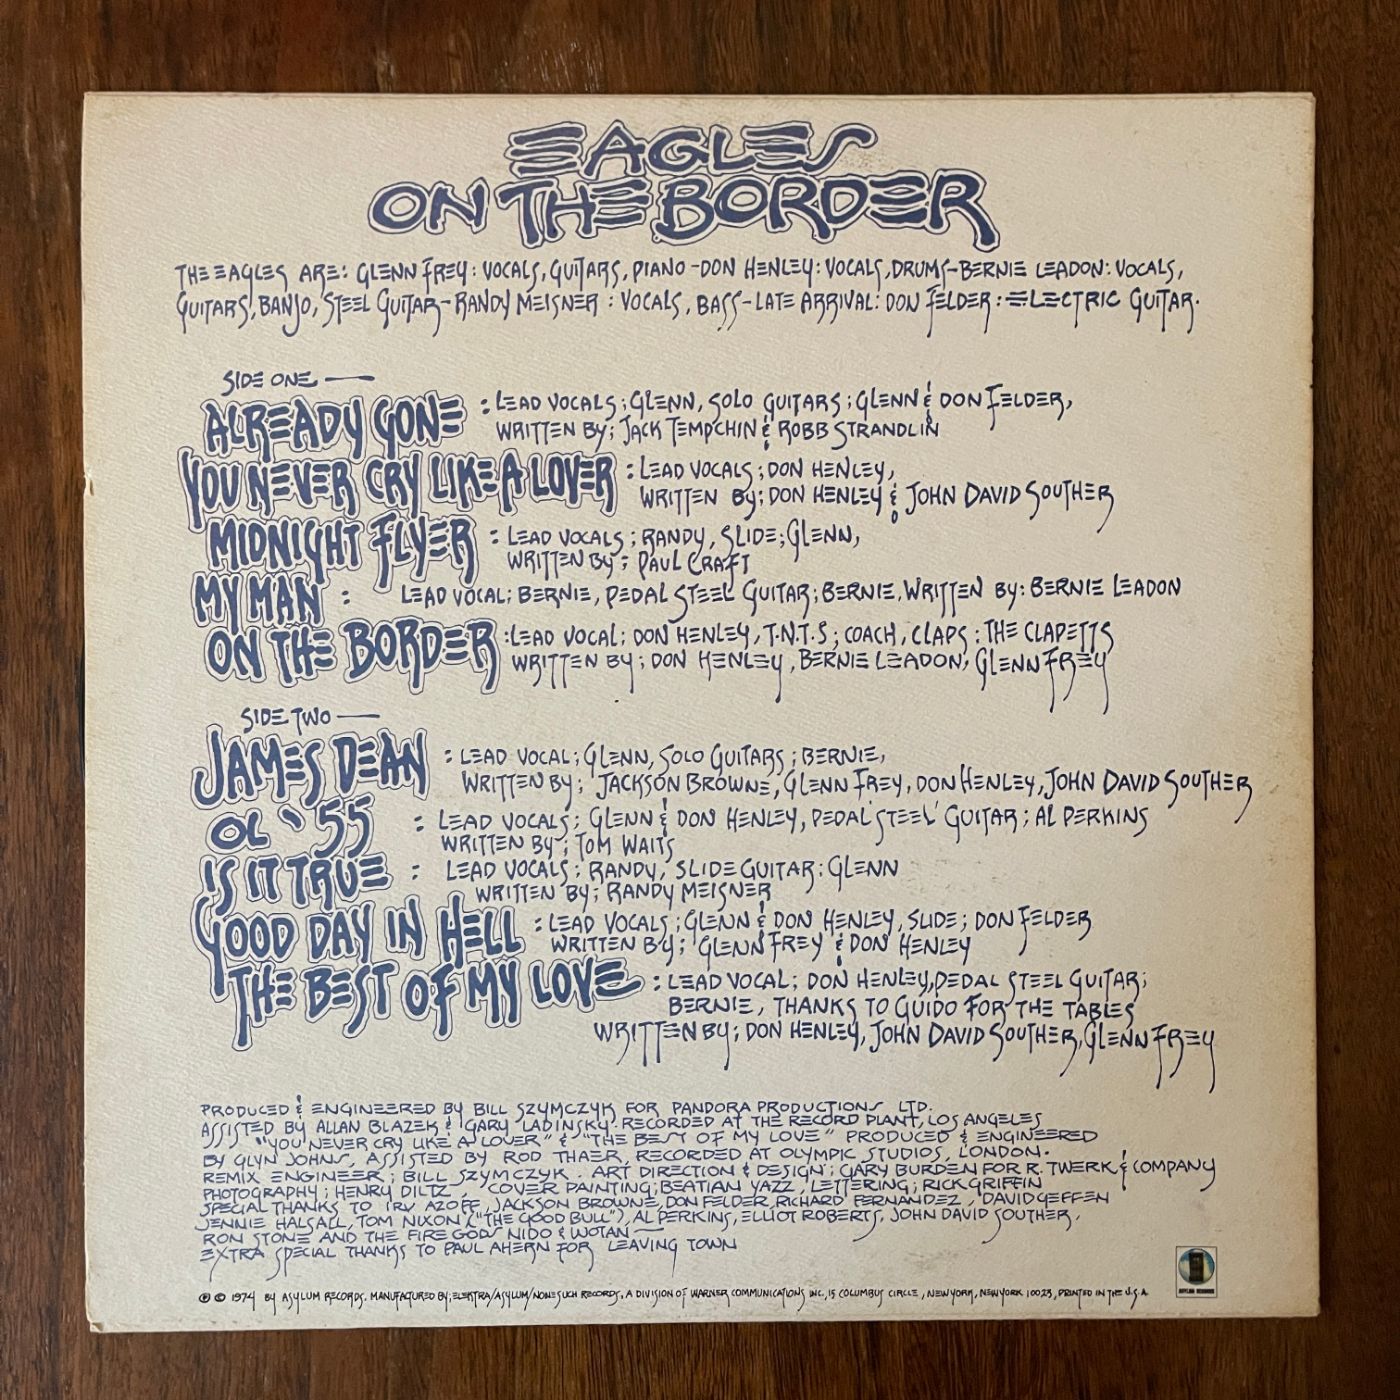 EAGLES
ON THE BORDER
THE EAGLES ARE: GLENN FREY: VOCALS, GUITARS, PIANO - DON HENLEY: VOCALS, DRUMS - BERNIE LEADON: VOCALS,
GUITARS, BANJO, STEEL GUITAR - RANDY MEISNER: VOCALS, BASS - LATE ARRIVAL: DON FELDER: ELECTRIC GUITAR.
SIDE ONE —
ALREADY GONE : LEAD VOCALS; GLENN, SOLO GUITARS; GLENN & DON FELDER,
WRITTEN BY; JACK TEMPCHIN & ROBB STRANDLIN
YOU NEVER CRY LIKE A LOVER : LEAD VOCALS; DON HENLEY,
WRITTEN BY; DON HENLEY & JOHN DAVID SOUTHER
MIDNIGHT FLYER : LEAD VOCALS; RANDY, SLIDE; GLENN,
WRITTEN BY; PAUL CRAFT
MY MAN : LEAD VOCAL; BERNIE, PEDAL STEEL GUITAR; BERNIE, WRITTEN BY: BERNIE LEADON
ON THE BORDER : LEAD VOCAL; DON HENLEY, T.N.T.S; COACH, CLAPS; THE CLAPETTS
WRITTEN BY; DON HENLEY, BERNIE LEADON, GLENN FREY
SIDE TWO —
JAMES DEAN : LEAD VOCAL; GLENN, SOLO GUITARS; BERNIE,
WRITTEN BY; JACKSON BROWNE, GLENN FREY, DON HENLEY, JOHN DAVID SOUTHER
OL '55 : LEAD VOCALS; GLENN & DON HENLEY, PEDAL STEEL GUITAR; AL PERKINS
WRITTEN BY; TOM WAITS
IS IT TRUE : LEAD VOCALS; RANDY, SLIDE GUITAR: GLENN
WRITTEN BY; RANDY MEISNER
GOOD DAY IN HELL : LEAD VOCALS; GLENN & DON HENLEY, SLIDE; DON FELDER
WRITTEN BY; GLENN FREY & DON HENLEY
THE BEST OF MY LOVE : LEAD VOCAL; DON HENLEY, PEDAL STEEL GUITAR;
BERNIE, THANKS TO GUIDO FOR THE TABLES
WRITTEN BY; DON HENLEY, JOHN DAVID SOUTHER, GLENN FREY
PRODUCED & ENGINEERED BY BILL SZYMCZYK FOR PANDORA PRODUCTIONS LTD.
ASSISTED BY ALLAN BLAZEK & GARY LADINSKY. RECORDED AT THE RECORD PLANT, LOS ANGELES
"YOU NEVER CRY LIKE A LOVER" & "THE BEST OF MY LOVE" PRODUCED & ENGINEERED
BY GLYN JOHNS, ASSISTED BY ROD THAER, RECORDED AT OLYMPIC STUDIOS, LONDON.
REMIX ENGINEER; BILL SZYMCZYK. ART DIRECTION & DESIGN; GARY BURDEN FOR R. TWERK & COMPANY
PHOTOGRAPHY; HENRY DILTZ, COVER PAINTING; BEATIAN YAZZ, LETTERING; RICK GRIFFIN
SPECIAL THANKS TO IRV AZOFF, JACKSON BROWNE, DON FELDER, RICHARD FERNANDEZ, DAVID GEFFEN
JENNIE HALSALL, TOM NIXON ("THE GOOD BULL"), AL PERKINS, ELLIOT ROBERTS, JOHN DAVID SOUTHER,
RON STONE AND THE FIRE GODS NIDO & WOTAN —
EXTRA SPECIAL THANKS TO PAUL AHERN FOR LEAVING TOWN
℗ © 1974 BY ASYLUM RECORDS. MANUFACTURED BY; ELEKTRA/ASYLUM/NONESUCH RECORDS, A DIVISION OF WARNER COMMUNICATIONS INC, 15 COLUMBUS CIRCLE, NEW YORK, NEW YORK 10023, PRINTED IN THE U.S.A.
ASYLUM RECORDS